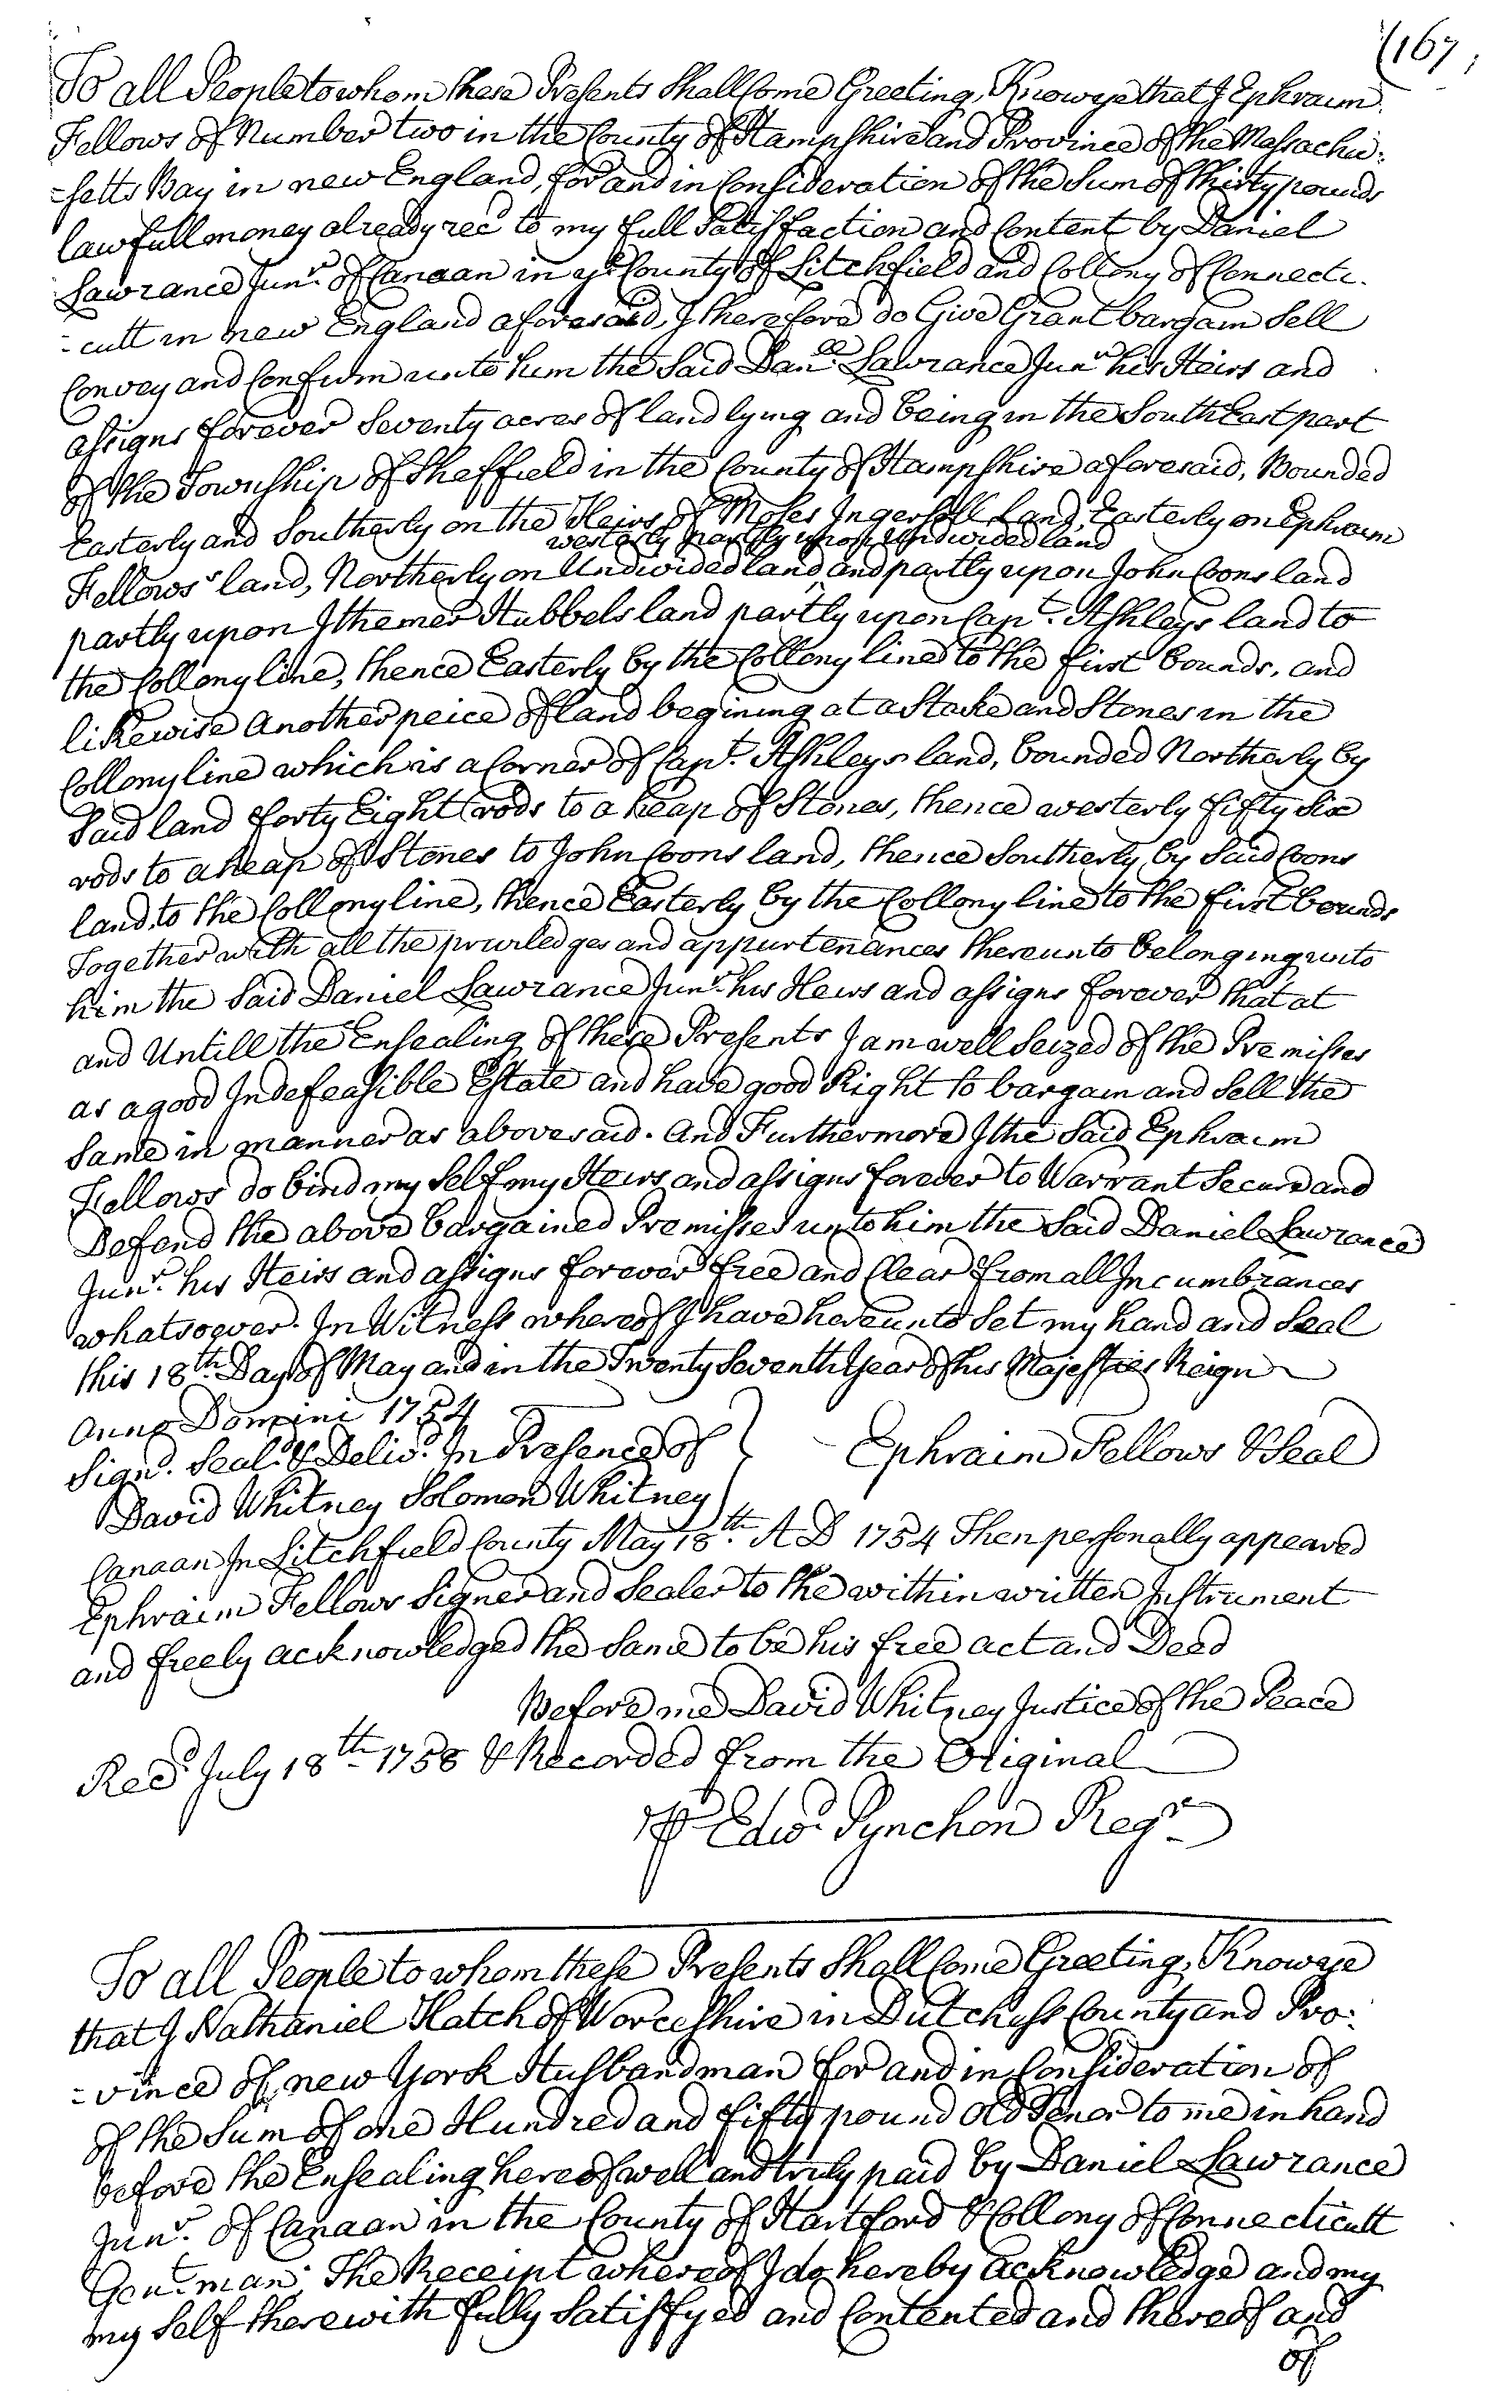 (167,
To all People to whom these Presents Shall Come Greeting, Know ye that I Ephraim
Fellows of Number two in the County of Hampshire and Province of the Massachu-
-setts Bay in new England, for and in Consideration of the Sum of thirty pounds
lawfull money already recd to my full Satisfaction and Content by Daniel
Lawrance Junr. of Canaan in ye County of Litchfield and Collony of Connecti-
-cutt in new England aforesaid, I therefore do Give Grant bargain Sell
Convey and Confirm unto him the Said Danll Lawrance Junr his Heirs and
assigns forever Seventy acres of land lying and being in the South East part
of the Township of Sheffield in the County of Hampshire aforesaid, Bounded
Easterly and Southerly on the Heirs of Moses Ingersoll Land, Easterly on Ephraim
westerly partly upon Undivided land
Fellows's land, Northerly on Undivided land and partly upon John Coons land
partly upon Ithemer Hubbels land partly upon Capt. Ashleys land to
the Collony line, thence Easterly by the Collony line to the first bounds, and
likewise Another peice of land begining at a Stake and Stones in the
Collony line which is a Corner of Capt. Ashleys land, bounded Northerly by
Said land forty Eight rods to a heap of Stones, thence westerly fifty Six
rods to a heap of Stones to John Coons land, thence Southerly by Said Coons
land to the Collony line, thence Easterly by the Collony line to the first bounds
Together with all the priviledges and appurtenances thereunto belonging unto
him the Said Daniel Lawrance Junr. his Heirs and assigns forever that at
and Untill the Ensealing of these Presents I am well Seized of the Premisses
as a good Indefeasible Estate and have good Right to bargain and Sell the
Same in manner as abovesaid. And Furthermore I the Said Ephraim
Fellows do bind my Self my Heirs and assigns forever to Warrant Secure and
Defend the above bargained Premisses unto him the Said Daniel Lawrance
Junr. his Heirs and assigns forever free and Clear from all Incumbrances
whatsoever. In Witness whereof I have hereunto Set my hand and Seal
this 18th Day of May and in the Twenty Seventh Year of his Majesties Reign
Anno Domini 1754
Signd. Seald. & Delivd. In Presence of } Ephraim Fellows & Seal
David Whitney Solomon Whitney
Canaan In Litchfield County May 18th. A D 1754 Then personally appeared
Ephraim Fellows Signer and Sealer to the within written Instrument
and freely acknowledged the Same to be his free act and Deed
Before me David Whitney Justice of the Peace
Recd July 18th 1758 & Recorded from the Original
⅌ Edwd. Pynchon Regr
To all People to whom these Presents Shall Come Greeting, Know ye
that I Nathaniel Hatch of Worcesshire in Dutchess County and Pro-
-vince of new York Husbandman for and in Consideration of
of the Sum of one Hundred and fifty pound Old Tenor to me in hand
before the Ensealing hereof well and truly paid by Daniel Lawrance
Junr. of Canaan in the County of Hartford & Collony of Connecticutt
Gentman; The Receipt whereof I do hereby acknowledge and my
my Self therewith fully Satisfyed and Contented and thereof and
of